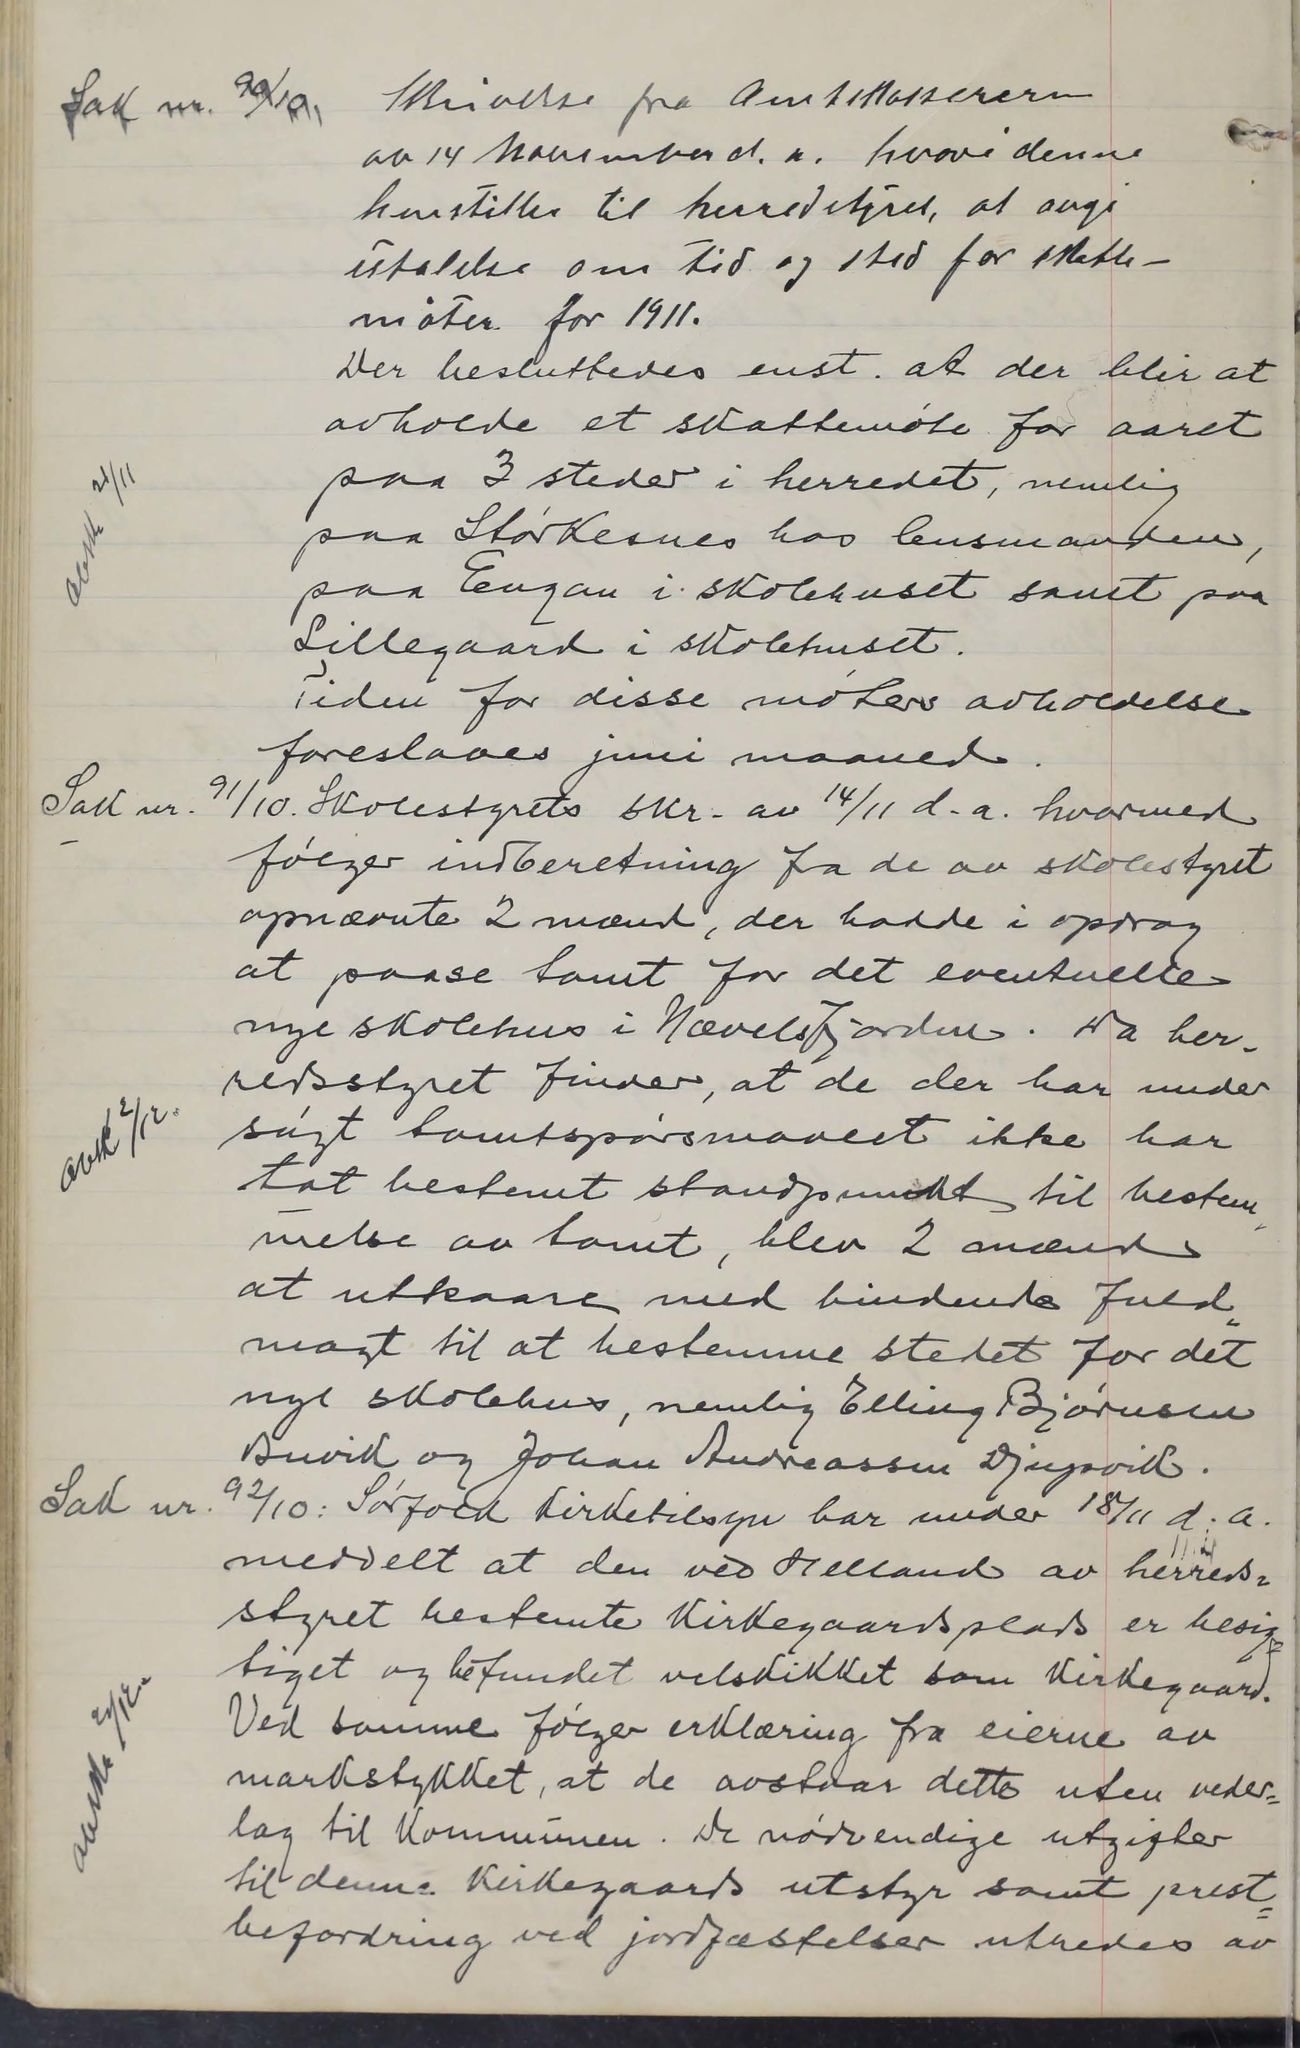 Sak nr. 90/10. Skrivelse fra Amtskassereren
av 14 November d. a. hvori denne
henstiller til herredstyret, at avgi
utalelse om tid og sted for skatte-
møter for 1911.
Der besluttedes enst. at der blir at
avholde et skattemøte for aaret
paa 3 steder i herredet, nemlig
paa Störkesnes hos lensmanden,
paa Engan i skolehuset samt paa
Lillegaard i skolehuset.
Tiden for disse møters avholdelse
foreslaaes juni maaned.
avsk 21/11
Sak nr. 91/10. Skolestyrets skr. av 14/11 d. a. hvormed
følger indberetning fra de av skolestyret
opnævnte 2 mænd, der hadde i opdrag
at paase tomt for det eventuelle
nye skolehus i Nævelsfjorden. Da her-
redsstyret finder, at de der har under
søgt tomtspørsmaalet ikke har
tat bestemt standpunkt til bestem„
melse av tomt, blev 2 mænd
at utkaare med bindende fuld„
magt til at bestemme stedet for det
nye skolehus, nemlig Elling Bjørnsen
Buvik og Johan Andreassen Djupvik.
avsk 2/12.
Sak nr. 92/10: Sørfold Kirketilsyn har under 18/11 d. a.
meddelt at den ved Helland av herreds=
styret bestemte Kirkegaardsplads er besig=
tiget og befundet velskikket som Kirkegaard.
Ved samme følger erklæring fra eierne av
markstykket, at de avstaar dette uten veder=
lag til Kommunen. De nødvendige utgifter
til denne Kirkegaards utstyr samt prest=
befordring ved jordfæstelser utredes av